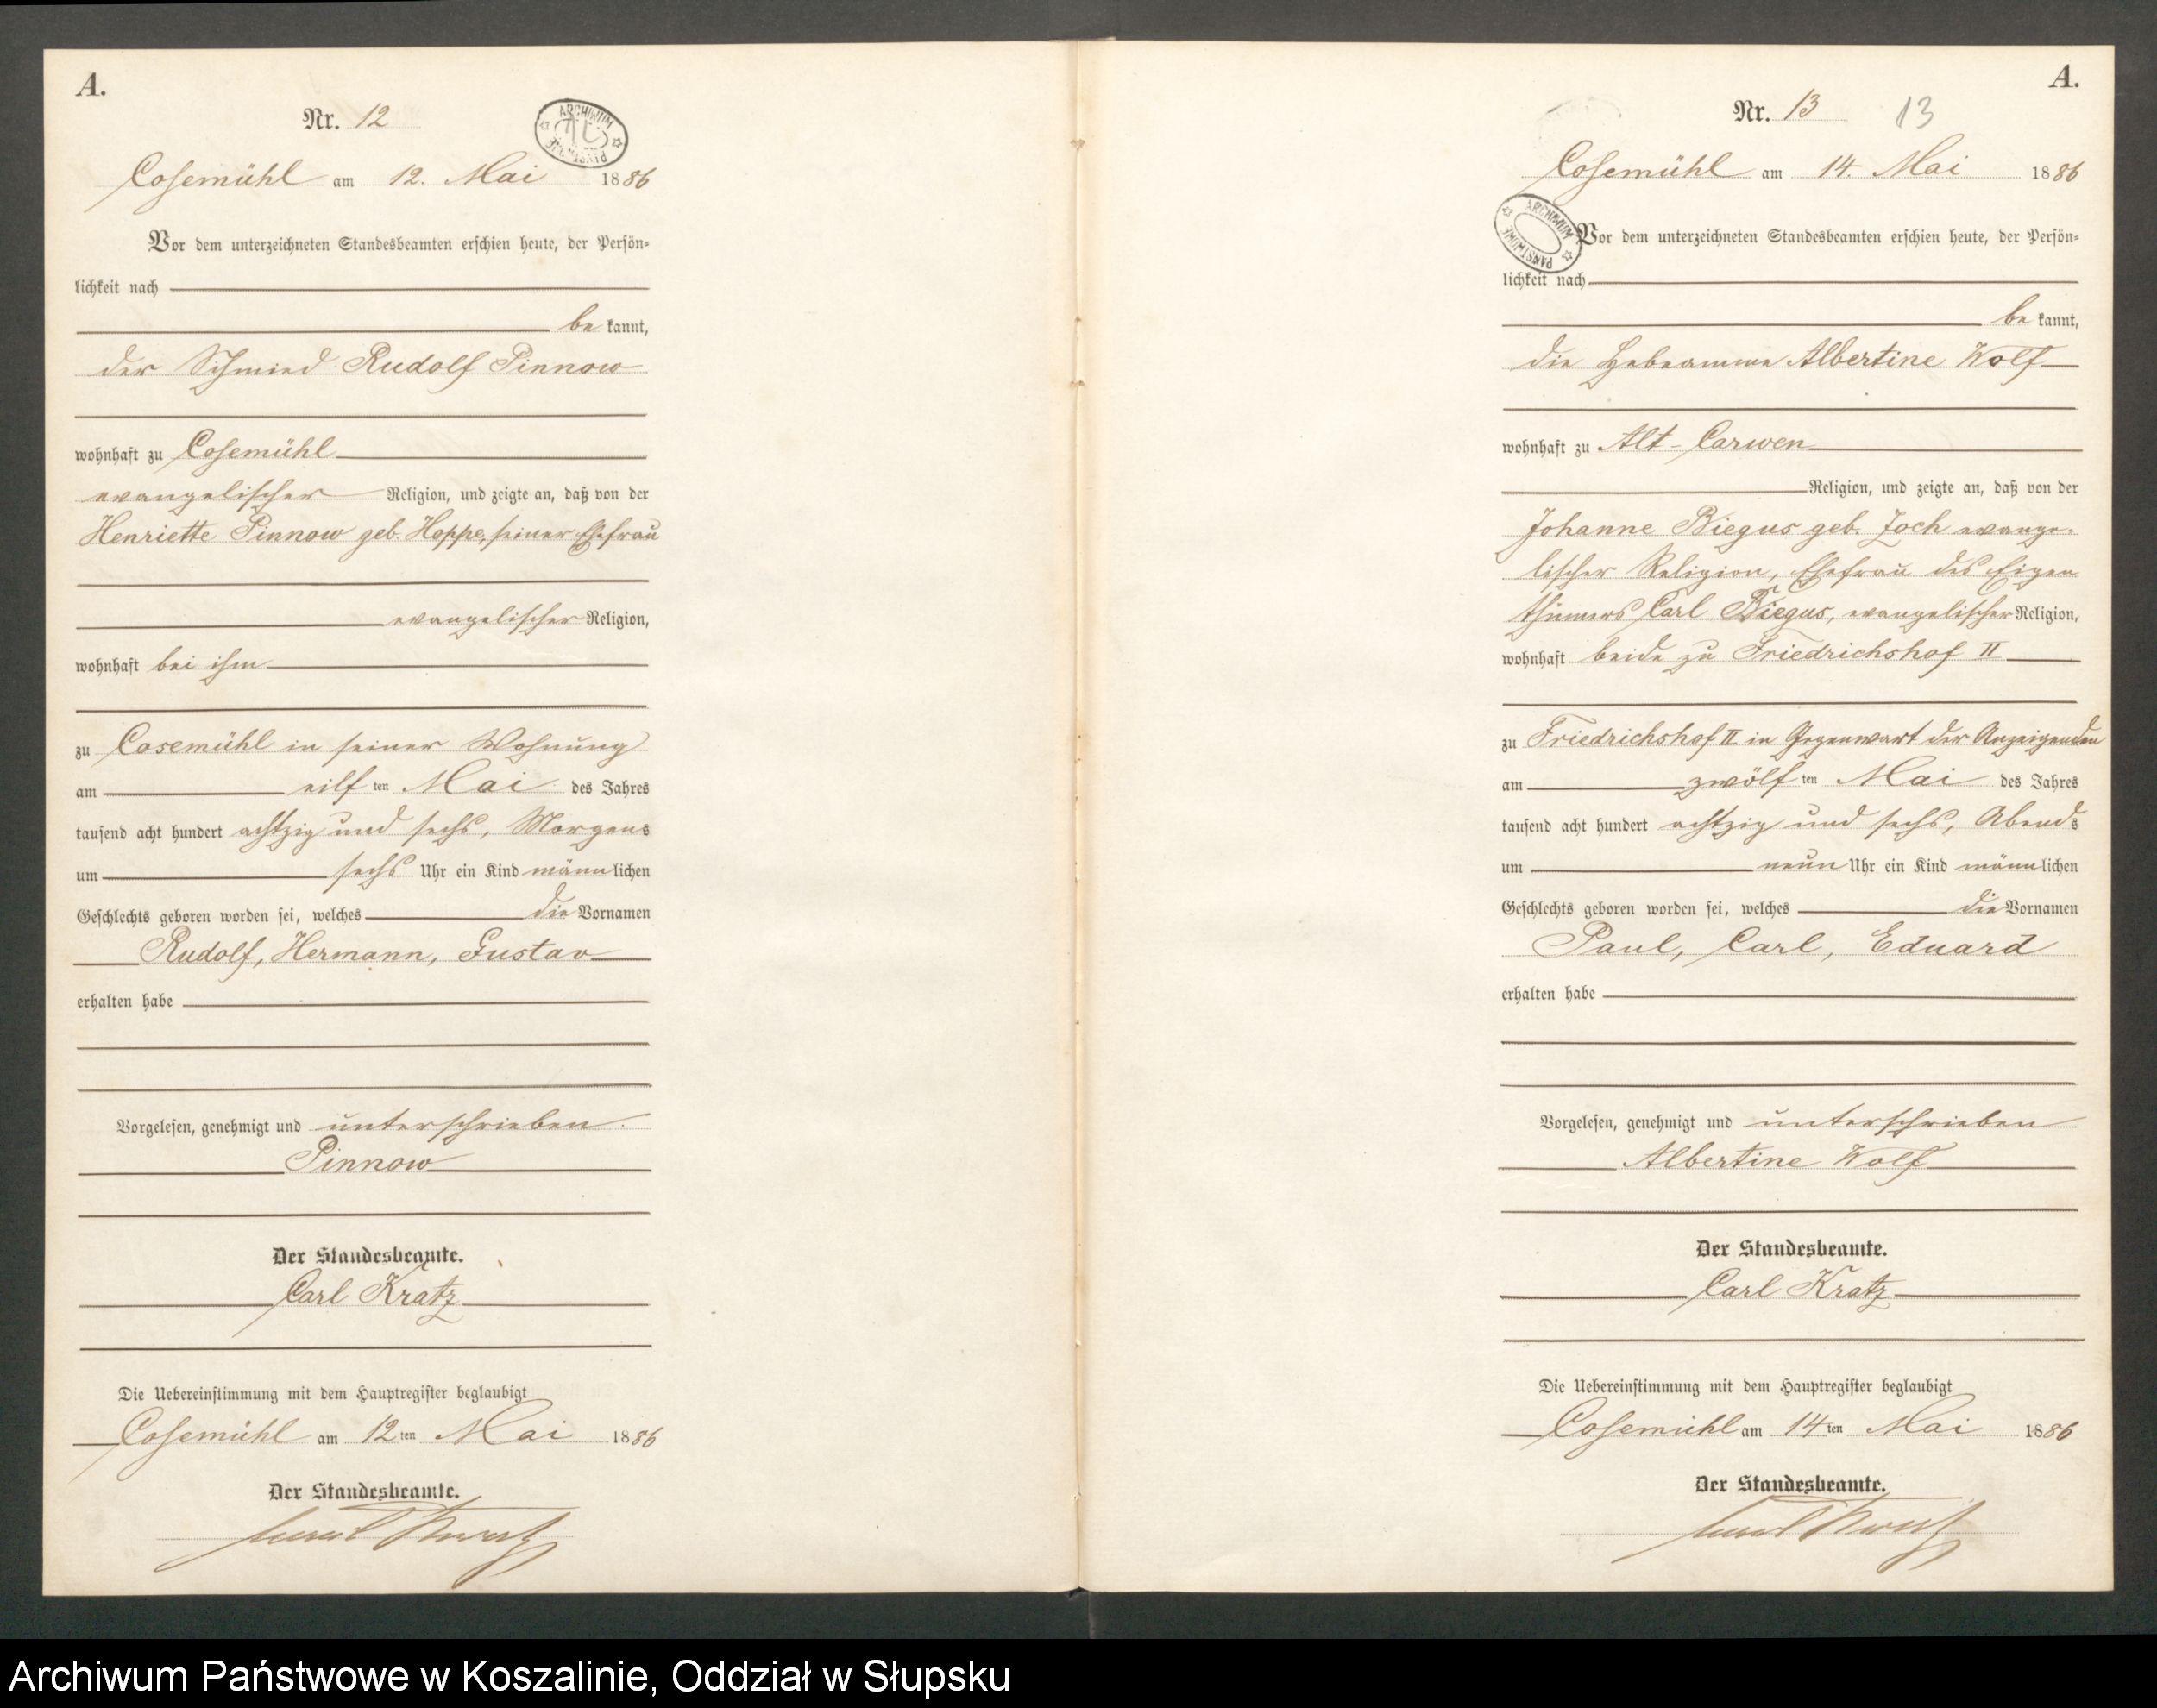 A.
Nr. 12
ARCHIWUM PAŃSTWOWE
Cosemühl am 12. Mai 1886
Vor dem unterzeichneten Standesbeamten erschien heute, der Persön-
lichkeit nach
be kannt,
der Schmied Rudolf Pinnow
wohnhaft zu Cosemühl
evangelischer Religion, und zeigte an, daß von der
Henriette Pinnow geb. Hoppe, seiner Ehefrau
evangelischer Religion,
wohnhaft bei ihm
zu Cosemühl in seiner Wohnung
am eilf ten Mai des Jahres
tausend acht hundert achtzig und sechs, Morgens
um sechs Uhr ein Kind männlichen
Geschlechts geboren worden sei, welches die Vornamen
Rudolf, Hermann, Gustav
erhalten habe
Vorgelesen, genehmigt und unterschrieben.
Pinnow
Der Standesbeamte.
Carl Kratz
Die Uebereinstimmung mit dem Hauptregister beglaubigt
Cosemühl am 12ten Mai 1886
Der Standesbeamte.
Carl Kratz
A.
Nr. 13 13
Cosemühl am 14. Mai 1886
ARCHIWUM PAŃSTWOWE
Vor dem unterzeichneten Standesbeamten erschien heute, der Persön-
lichkeit nach
be kannt,
die Hebeamme Albertine Wolf
wohnhaft zu Alt-Carwen
Religion, und zeigte an, daß von der
Johanne Biegus geb. Zoch evange-
lischer Religion, Ehefrau des Eigen
thümers Carl Biegus, evangelischer Religion,
wohnhaft beide zu Friedrichshof II
zu Friedrichshof II in Gegenwart der Anzeigenden
am zwölf ten Mai des Jahres
tausend acht hundert achtzig und sechs, Abends
um neun Uhr ein Kind männlichen
Geschlechts geboren worden sei, welches die Vornamen
Paul, Carl, Eduard
erhalten habe
Vorgelesen, genehmigt und unterschrieben
Albertine Wolf
Der Standesbeamte.
Carl Kratz
Die Uebereinstimmung mit dem Hauptregister beglaubigt
Cosemühl am 14ten Mai 1886
Der Standesbeamte.
Carl Kratz
Archiwum Państwowe w Koszalinie, Oddział w Słupsku